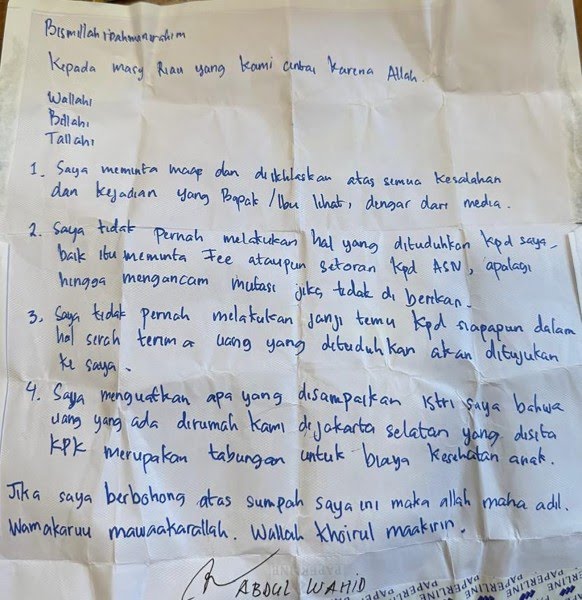 Bismillahirahmanirahim
Kepada masy Riau yang kami cintai karena Allah.
Wallahi
Billahi
Tallahi
1. Saya meminta maap dan diikhlaskan atas semua kesalahan
dan kejadian yang Bapak/Ibu lihat, dengar dari media.
2. Saya tidak pernah melakukan hal yang dituduhkan kpd saya
baik itu meminta Fee ataupun setoran kpd ASN, apalagi
hingga mengancam mutasi jika tidak di berikan.
3. Saya tidak pernah melakukan janji temu kpd siapapun dalam
hal serah terima uang yang dituduhkan akan ditujukan
ke saya.
4. Saya menguatkan apa yang disampaikan istri saya bahwa
uang yang ada dirumah kami dijakarta selatan yang disita
KPK merupakan tabungan untuk biaya kesehatan anak.
Jika saya berbohong atas sumpah saya ini maka allah maha adil.
Wamakaruu mawaakarallah. Wallah khoirul maakirin.
ABDUL WAHID
PAPERLINE PAPERLINE PAPERLINE